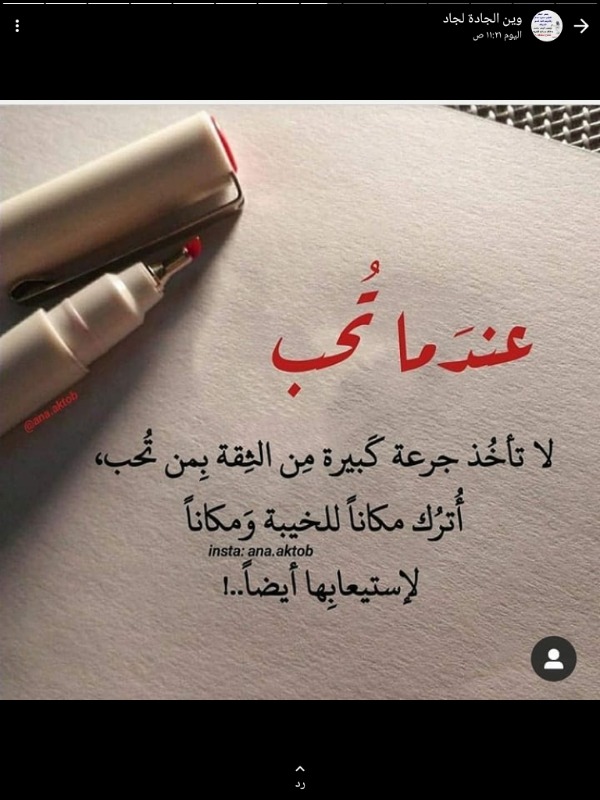 وين الجادة لجاد
اليوم ١١:٢١ ص
عندَما تُحب
@ana.aktob
لا تأخُذ جرعة كَبيرة مِن الثِقة بِمن تُحب،
أُترُك مكاناً للخيبة وَمكاناً
insta: ana.aktob
لإستيعابِها أيضاً..!
رد